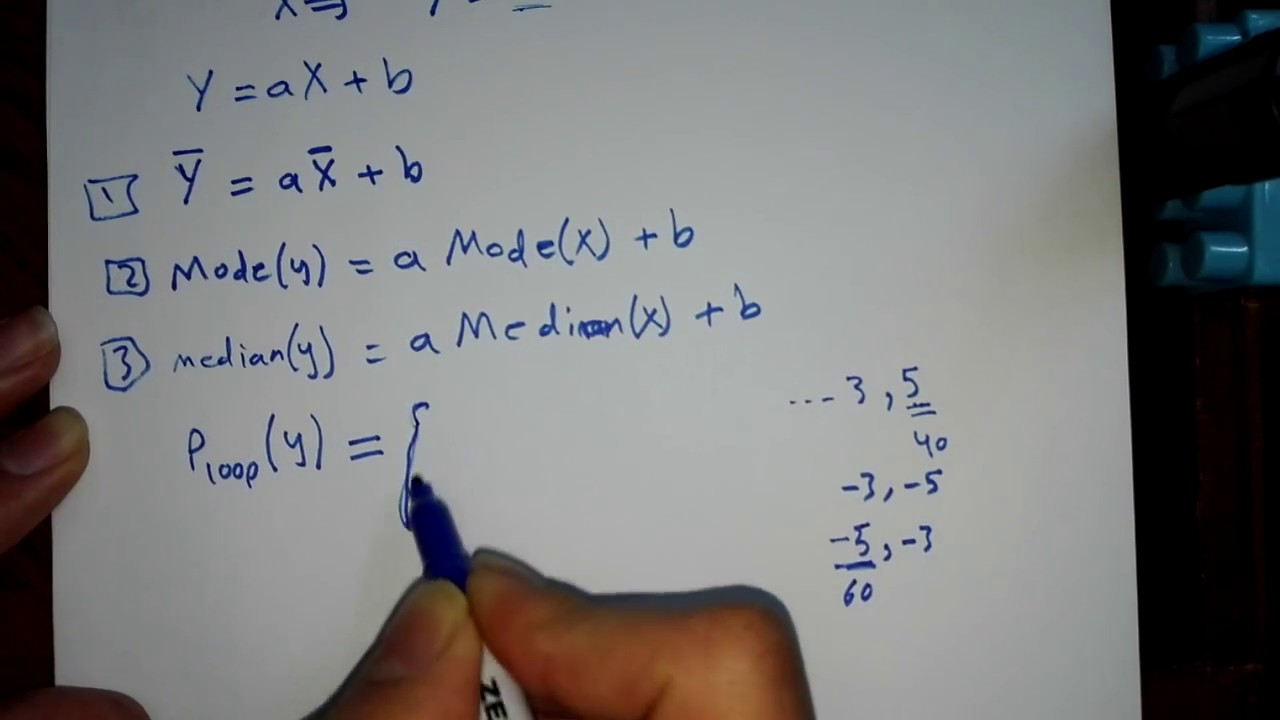 Y = aX + b
1 Ȳ = aX̄ + b
2 Mode(y) = a Mode(x) + b
3 median(y) = a Median(x) + b
P100p(y) = {
... 3 , 5
40
-3, -5
-5, -3
60
ZE